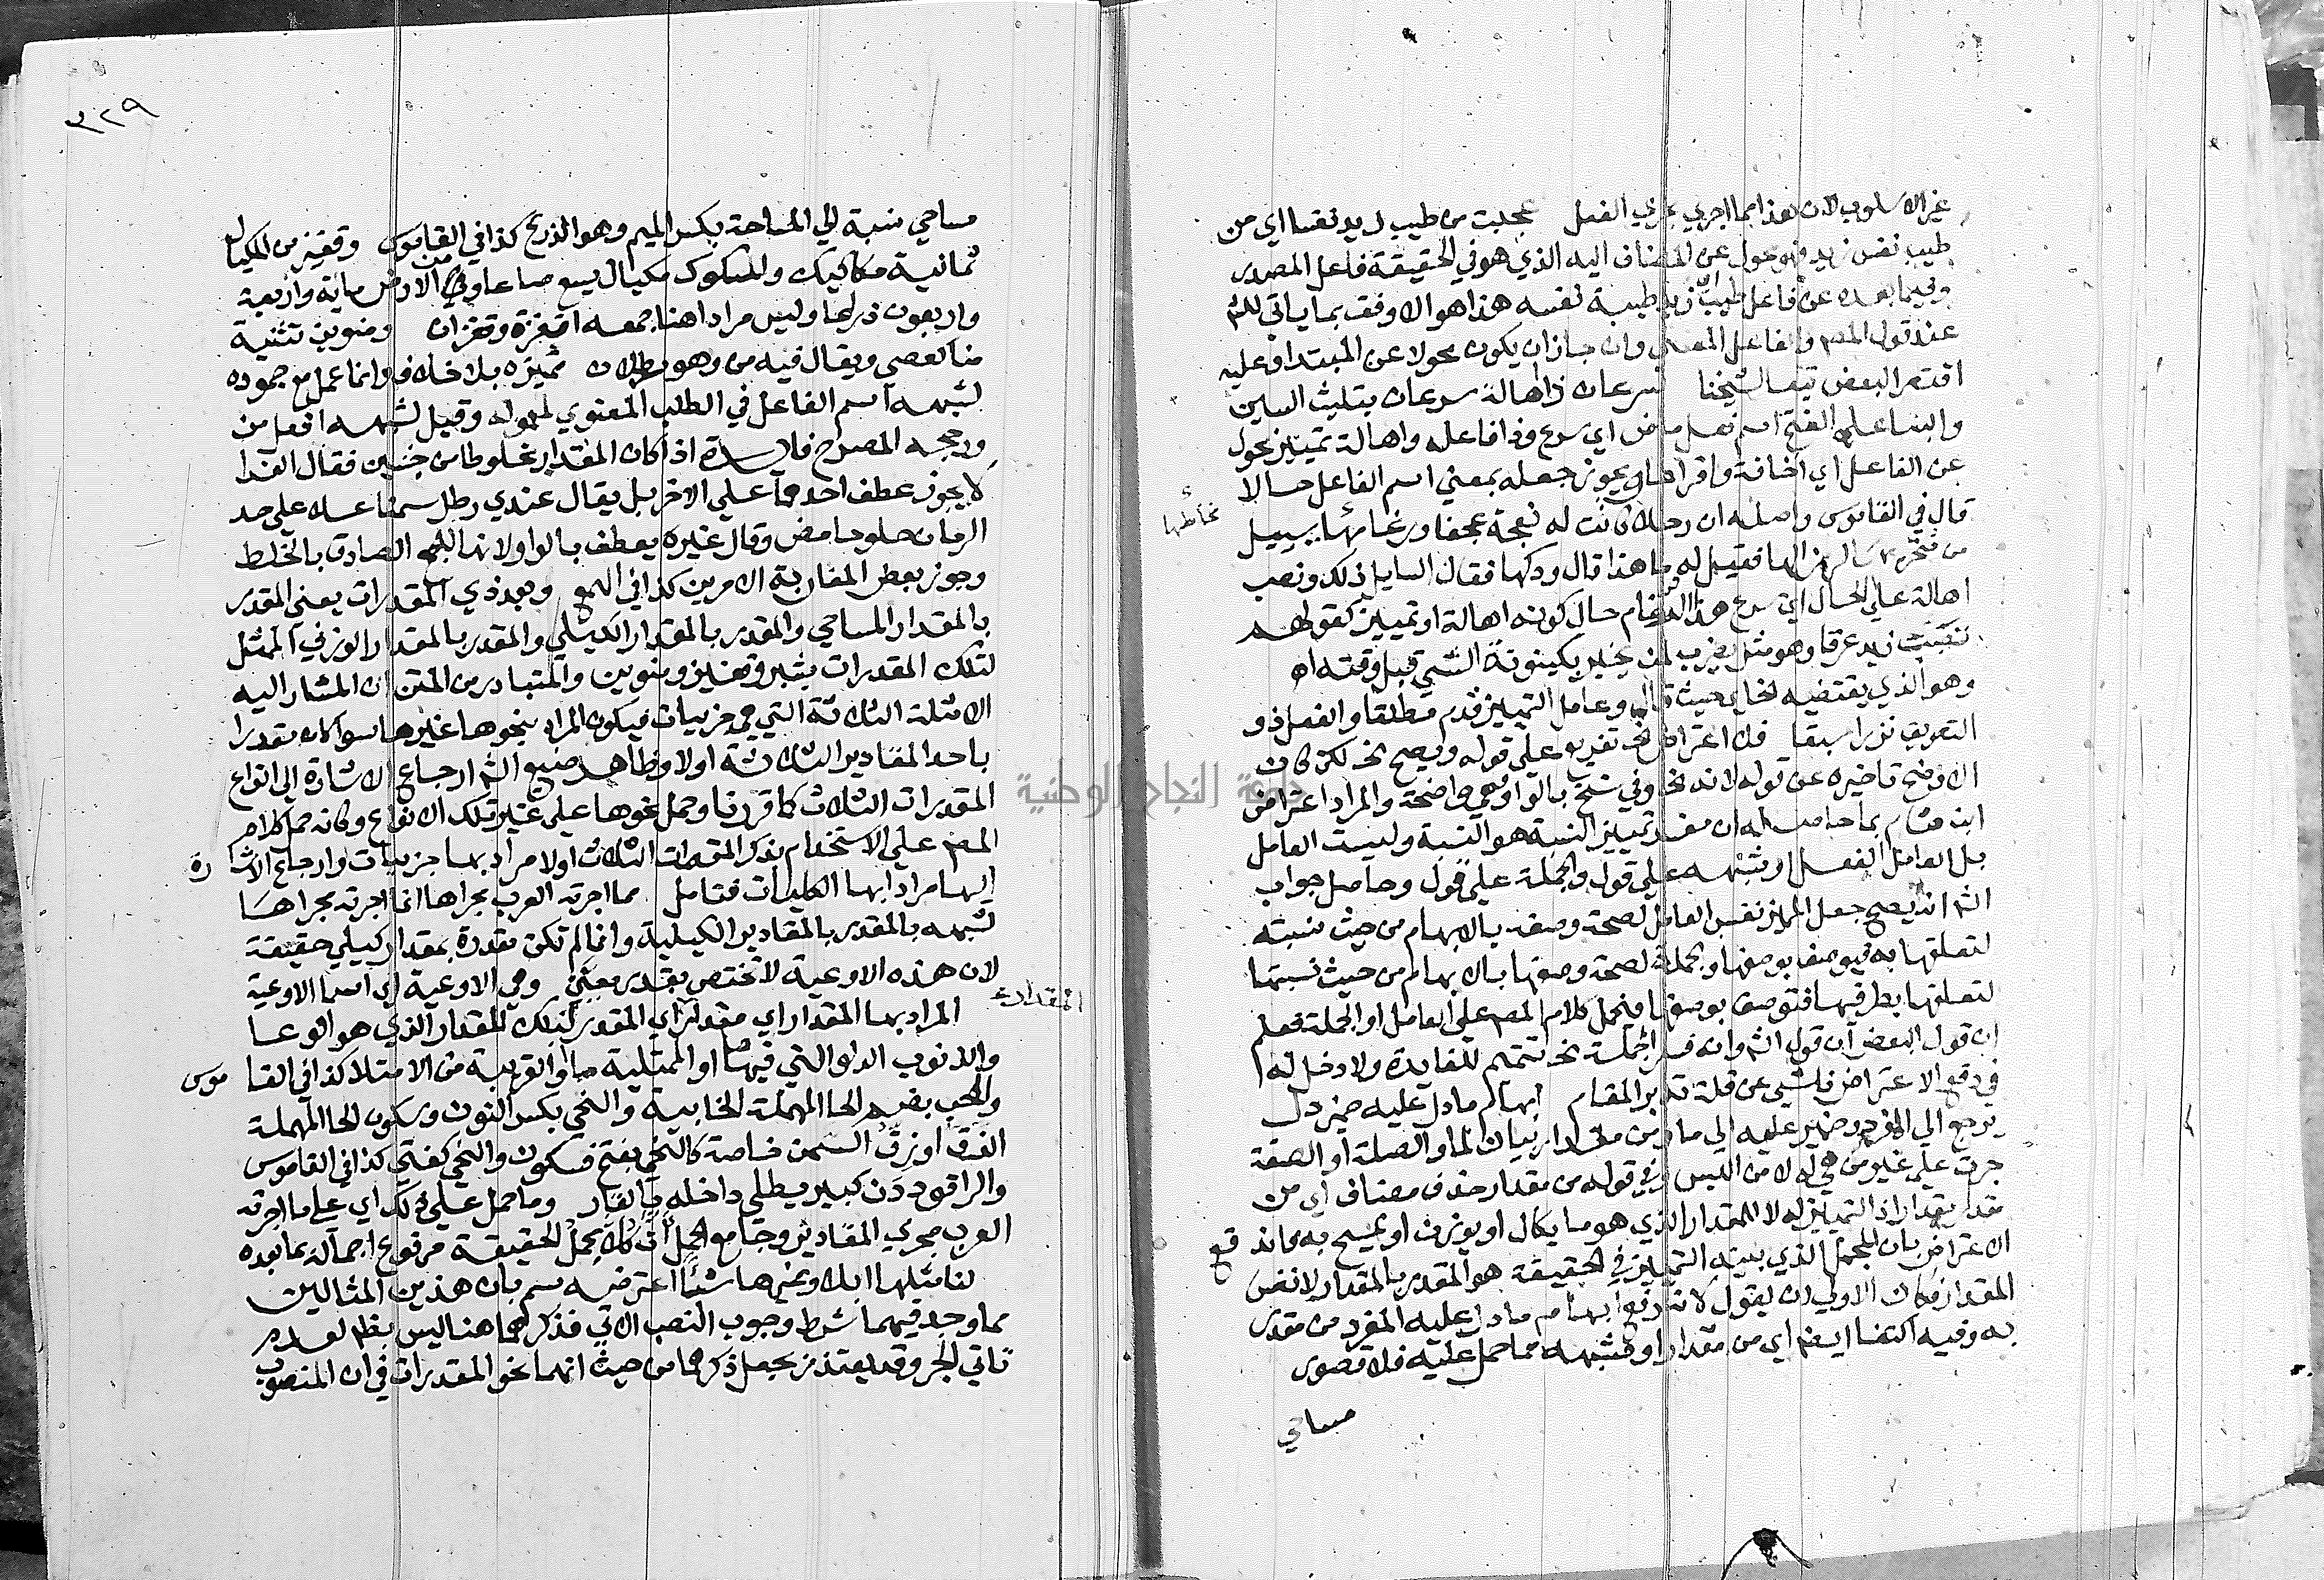 غير الاسلوب لان هذا مما اجري مجري الفعل عجبت من طيب زيد نفسا اي من
طيب نفس زيد فهو محول عن المضاف اليه الذي هو في الحقيقة فاعل المصدر
وفيما بعده عن فاعل طيب اي زيد طيبة نفسه هذا هو الاوفق بما ياتي للشم
عند قول المصم والفاعل المعني وان جاز ان يكون محولا عن المبتدا وعليه
اقتصر البعض تبعا لشيخنا سرعان ذا اهالة سرعان بتثليث السين
والبنا علي الفتح اسم فعل ماض اي سرع وذا فاعله واهالة تمييز محول
عن الفاعل اي
قال في القاموس واصله ان رجلا كانت له نعجة عجفا ورغامها يسيل
مخاطها
من منخريها لهزالها فقيل له ما هذا قال ودكها فقال السايل ذلك ونصب
اهالة علي الحال اي سرع هذا الرغام حال كونه اهالة او تمييز كقولهم
تصبب زيد عرقا وهو مثل يضرب لمن يخبر بكينونة الشي قبل وقته اه
وهو الذي يقتضيه حيث قال وعامل التمييز قدم مطلقا والفعل ذو
التصريف نزرا سبقا فلا اعتراض تفريع علي قوله ويصح لكن كان
الاوضح تاخيره عن قوله لانه وفي نسخ بالواو وهي واضحة والمراد اعتراض
ابن هشام بما حاصله ان مفسر تمييز النسبة هو النسبة وليست العامل
بل العامل الفعل او شبهه علي قول والجملة علي قول وحاصل جواب
الشم انه يصح جعل المميز نفس العامل لصحة وصفه بالابهام من حيث نسبته
لتعلقها به فيوصف بوصفها وبجملة لصحة وصفها بالابهام من حيث نسبتها
لتعلقها بطرفيها فتوصف بوصفها فنحمل كلام المصم علي العامل او الجملة فعلم
ان قول البعض ان قول الشم وانه فسر الجملة تتميم للفايدة ولا دخل له
في دفع الاعتراض ناشي عن قلة تدبر المقام ابهام ما دل عليه ضمير دل
يرجع الي المفرد وضمير عليه الي ما ومن مقدار بيان لما والصلة او الصفة
جرت علي غير من هي له لامن اللبس وفي قوله من مقدار حذف مضاف اي من
مقدر بمقدار اذ التمييز له لا للمقدار الذي هو ما يكال او يوزن او يمسح به فاندفع
الاعتراض بان المجمل الذي يبينه التمييز في الحقيقة هو المقدر بالمقدار لا نفس
المقدار فكان الاولي ان يقول لانه رفع ابهام ما دل عليه المفرد من مقدر
به وفيه اكتفا ايضم اي من مقدار او مشبهه مما حمل عليه فلا قصور
مساحي
٣٢٩
مساحي نسبة الي المساحة بكسر الميم وهو الذرع كذا في القاموس وقفيز من المكيال
ثمانية مكاكيك والمكوك مكيال يسع صاعا ومن الارض ماية واربعة
واربعون ذراعا وليس مرادا هنا جمعه اقفزة وقفزان ومنوين تثنية
منا كعصي ويقال فيه من وهو رطلان مميزه بلا خلاف وانما عمل مع جموده
لشبهه اسم الفاعل في الطلب المعنوي لمعموله وقيل لشبهه افعل من
ورجحه المصرح فايدة اذا كان المقدار مخلوطا من جنسين فقال الفرا
لا يجوز عطف احدهما علي الاخر بل يقال عندي رطل سمنا عسلا علي حد
الرمان حلو حامض وقال غيره يعطف بالواو لانها للجمع الصادق بالخلط
وجوز بعض المغاربة الامرين كذا في الهمع وبعد ذي المقدرات يعني المقدر
بالمقدار المساحي والمقدر بالمقدار الكيلي والمقدر بالمقدار الوزني الممثل
لتلك المقدرات بشبر وقفيز ومنوين والمتبادر من المتن ان المشار اليه
الامثلة الثلاثة التي هي جزييات فيكون المراد بنحوها غيرها سوا كان مقدرا
باحد المقادير الثلاثة اولا وظاهر صنيع الشم ارجاع الاشارة الي انواع
المقدرات الثلاث كما قررنا وحمل نحوها علي غير تلك الانواع وكانه حمل كلام
المصم علي الاستخدام بذكر المقدرات الثلاث اولا مراد بها جزييات وارجاع الاشارة
اليها مرادا بها الكليات فتامل مما اجرته العرب مجراها انما اجرته مجراها
لشبهه بالمقدر بالمقادير الكيلية وانما لم تكن مقدرة بمقدار كيلي حقيقة
لان هذه الاوعية لا تختص بقدر معين وهي الاوعية اي اسما الاوعية
المراد بها المقدار اي مقدر اي المقدر بذلك المقدار الذي هو الوعا
والذنوب الدلو التي فيها ما او الممتلية ما او القريبة من الامتلا كذا في القاموس
والحب بضم الحا المهملة الخابية والنحي بكسر النون وسكون الحا المهملة
الزق او زق السمن خاصة كالنحي بفتح فسكون والنحي كفتي كذا في القاموس
والراقود دن كبير يطلي داخله بالقار وما حمل علي ذلك اي علي ما اجرته
العرب مجري المقادير وجامع الحمل ان كلا مجمل الحقيقة مرفوع اجماله بما بعده
لنا مثلها ابلا وغيرها شاء اعترضه سم بان هذين المثالين
مما وجد فيهما شرط وجوب النصب الاتي فذكرهما هنا ليس بظم لعدم
تاتي الجر وقد يعتذر بجعل ذكرهما من حيث انهما نحو المقدرات في ان المنصوب
جامعة النجاح الوطنية